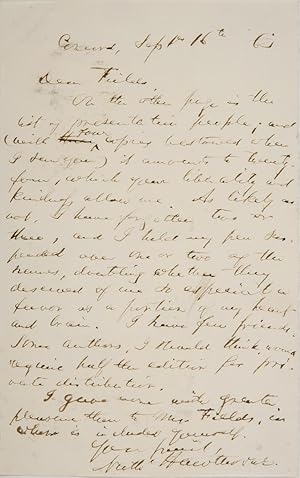 Concord, Sept 16th 63
Dear Fields,
On the other page is the
list of presentation people; and
(with four copies bestowed when
I saw you) it amounts to twenty-
four, which your liberality and
kindness allow me. As likely as
not, I have forgotten two or
three, and I held my pen sus-
pended over one or two of the
names, doubting whether they
deserved of me so especial a
favor as a portion of my heart
and brain. I have few friends.
Some authors, I should think, would
require half the edition for pri-
vate distribution.
I gave none with greater
pleasure than to Mrs Fields, in
whom is included yourself.
Your friend,
Nathl Hawthorne.